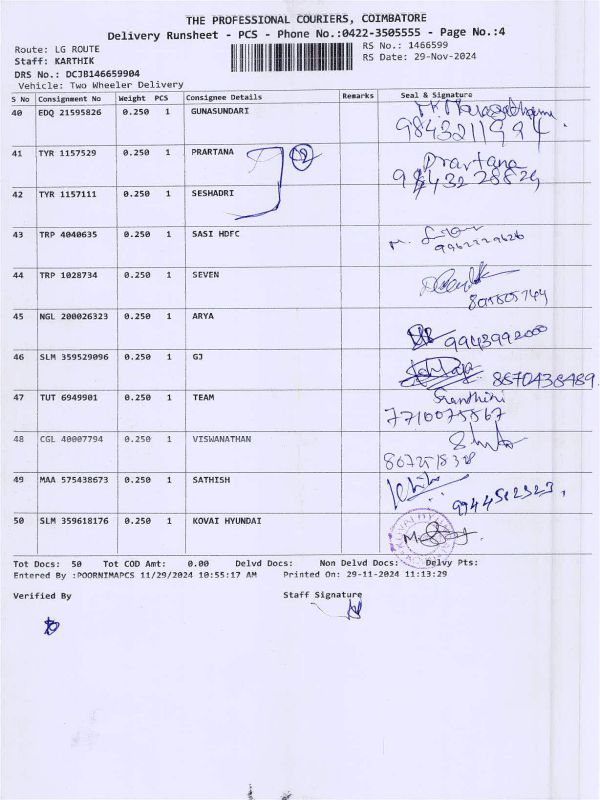 THE PROFESSIONAL COURIERS, COIMBATORE
Delivery Runsheet - PCS - Phone No.:0422-3505555 - Page No.:4
Route: LG ROUTE RS No.: 1466599
Staff: KARTHIK RS Date: 29-Nov-2024
DRS No.: DCJB146659904
Vehicle: Two Wheeler Delivery
S No Consignment No Weight PCS Consignee Details Remarks Seal & Signature
40 EDQ 21595826 0.250 1 GUNASUNDARI
9843211994.
41 TYR 1157529 0.250 1 PRARTANA Prartana
42 TYR 1157111 0.250 1 SESHADRI
43 TRP 4040635 0.250 1 SASI HDFC
44 TRP 1028734 0.250 1 SEVEN
45 NGL 200026323 0.250 1 ARYA
9943992000
46 SLM 359529096 0.250 1 GJ
8870438489
47 TUT 6949901 0.250 1 TEAM
48 CGL 40007794 0.250 1 VISWANATHAN
49 MAA 575438673 0.250 1 SATHISH
50 SLM 359618176 0.250 1 KOVAI HYUNDAI
Tot Docs: 50 Tot COD Amt: 0.00 Delvd Docs: Non Delvd Docs: Delvy Pts:
Entered By :POORNIMAPCS 11/29/2024 10:55:17 AM Printed On: 29-11-2024 11:13:29
Verified By Staff Signature